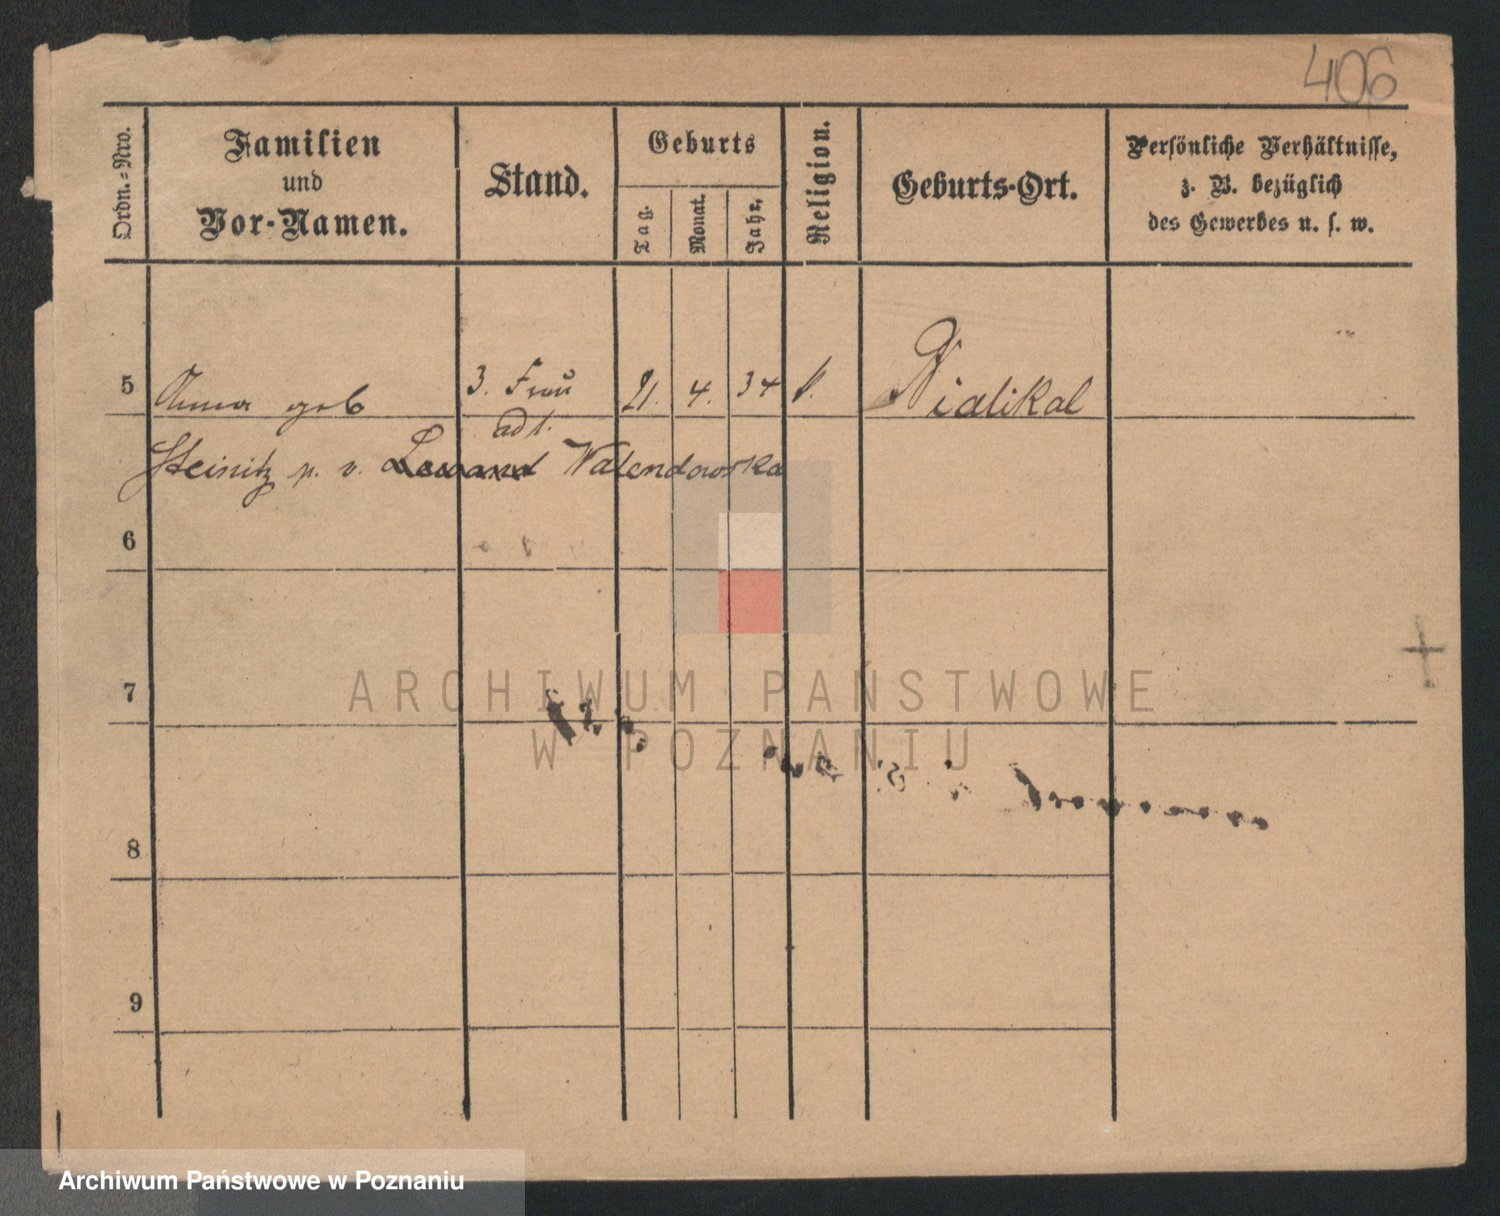 406
Ordn.-Nro.
Familien
und
Vor-Namen.
Stand.
Geburts
Tag.
Monat.
Jahr.
Religion.
Geburts-Ort.
Persönliche Verhältnisse,
z. B. bezüglich
des Gewerbes u. s. w.
5 Anna geb 3. Frau 21. 4. 34
adl.
Steinitz p. v. Walendowska
6
7
8
9
ARCHIWUM PAŃSTWOWE
W POZNANIU
Archiwum Państwowe w Poznaniu